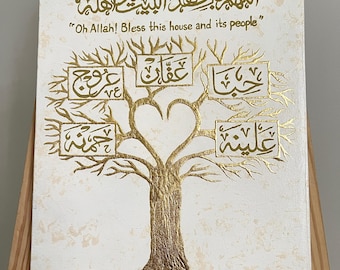 "Oh Allah! Bless this house and its people"
عفان
عروج
حبا
حمنه
علينه